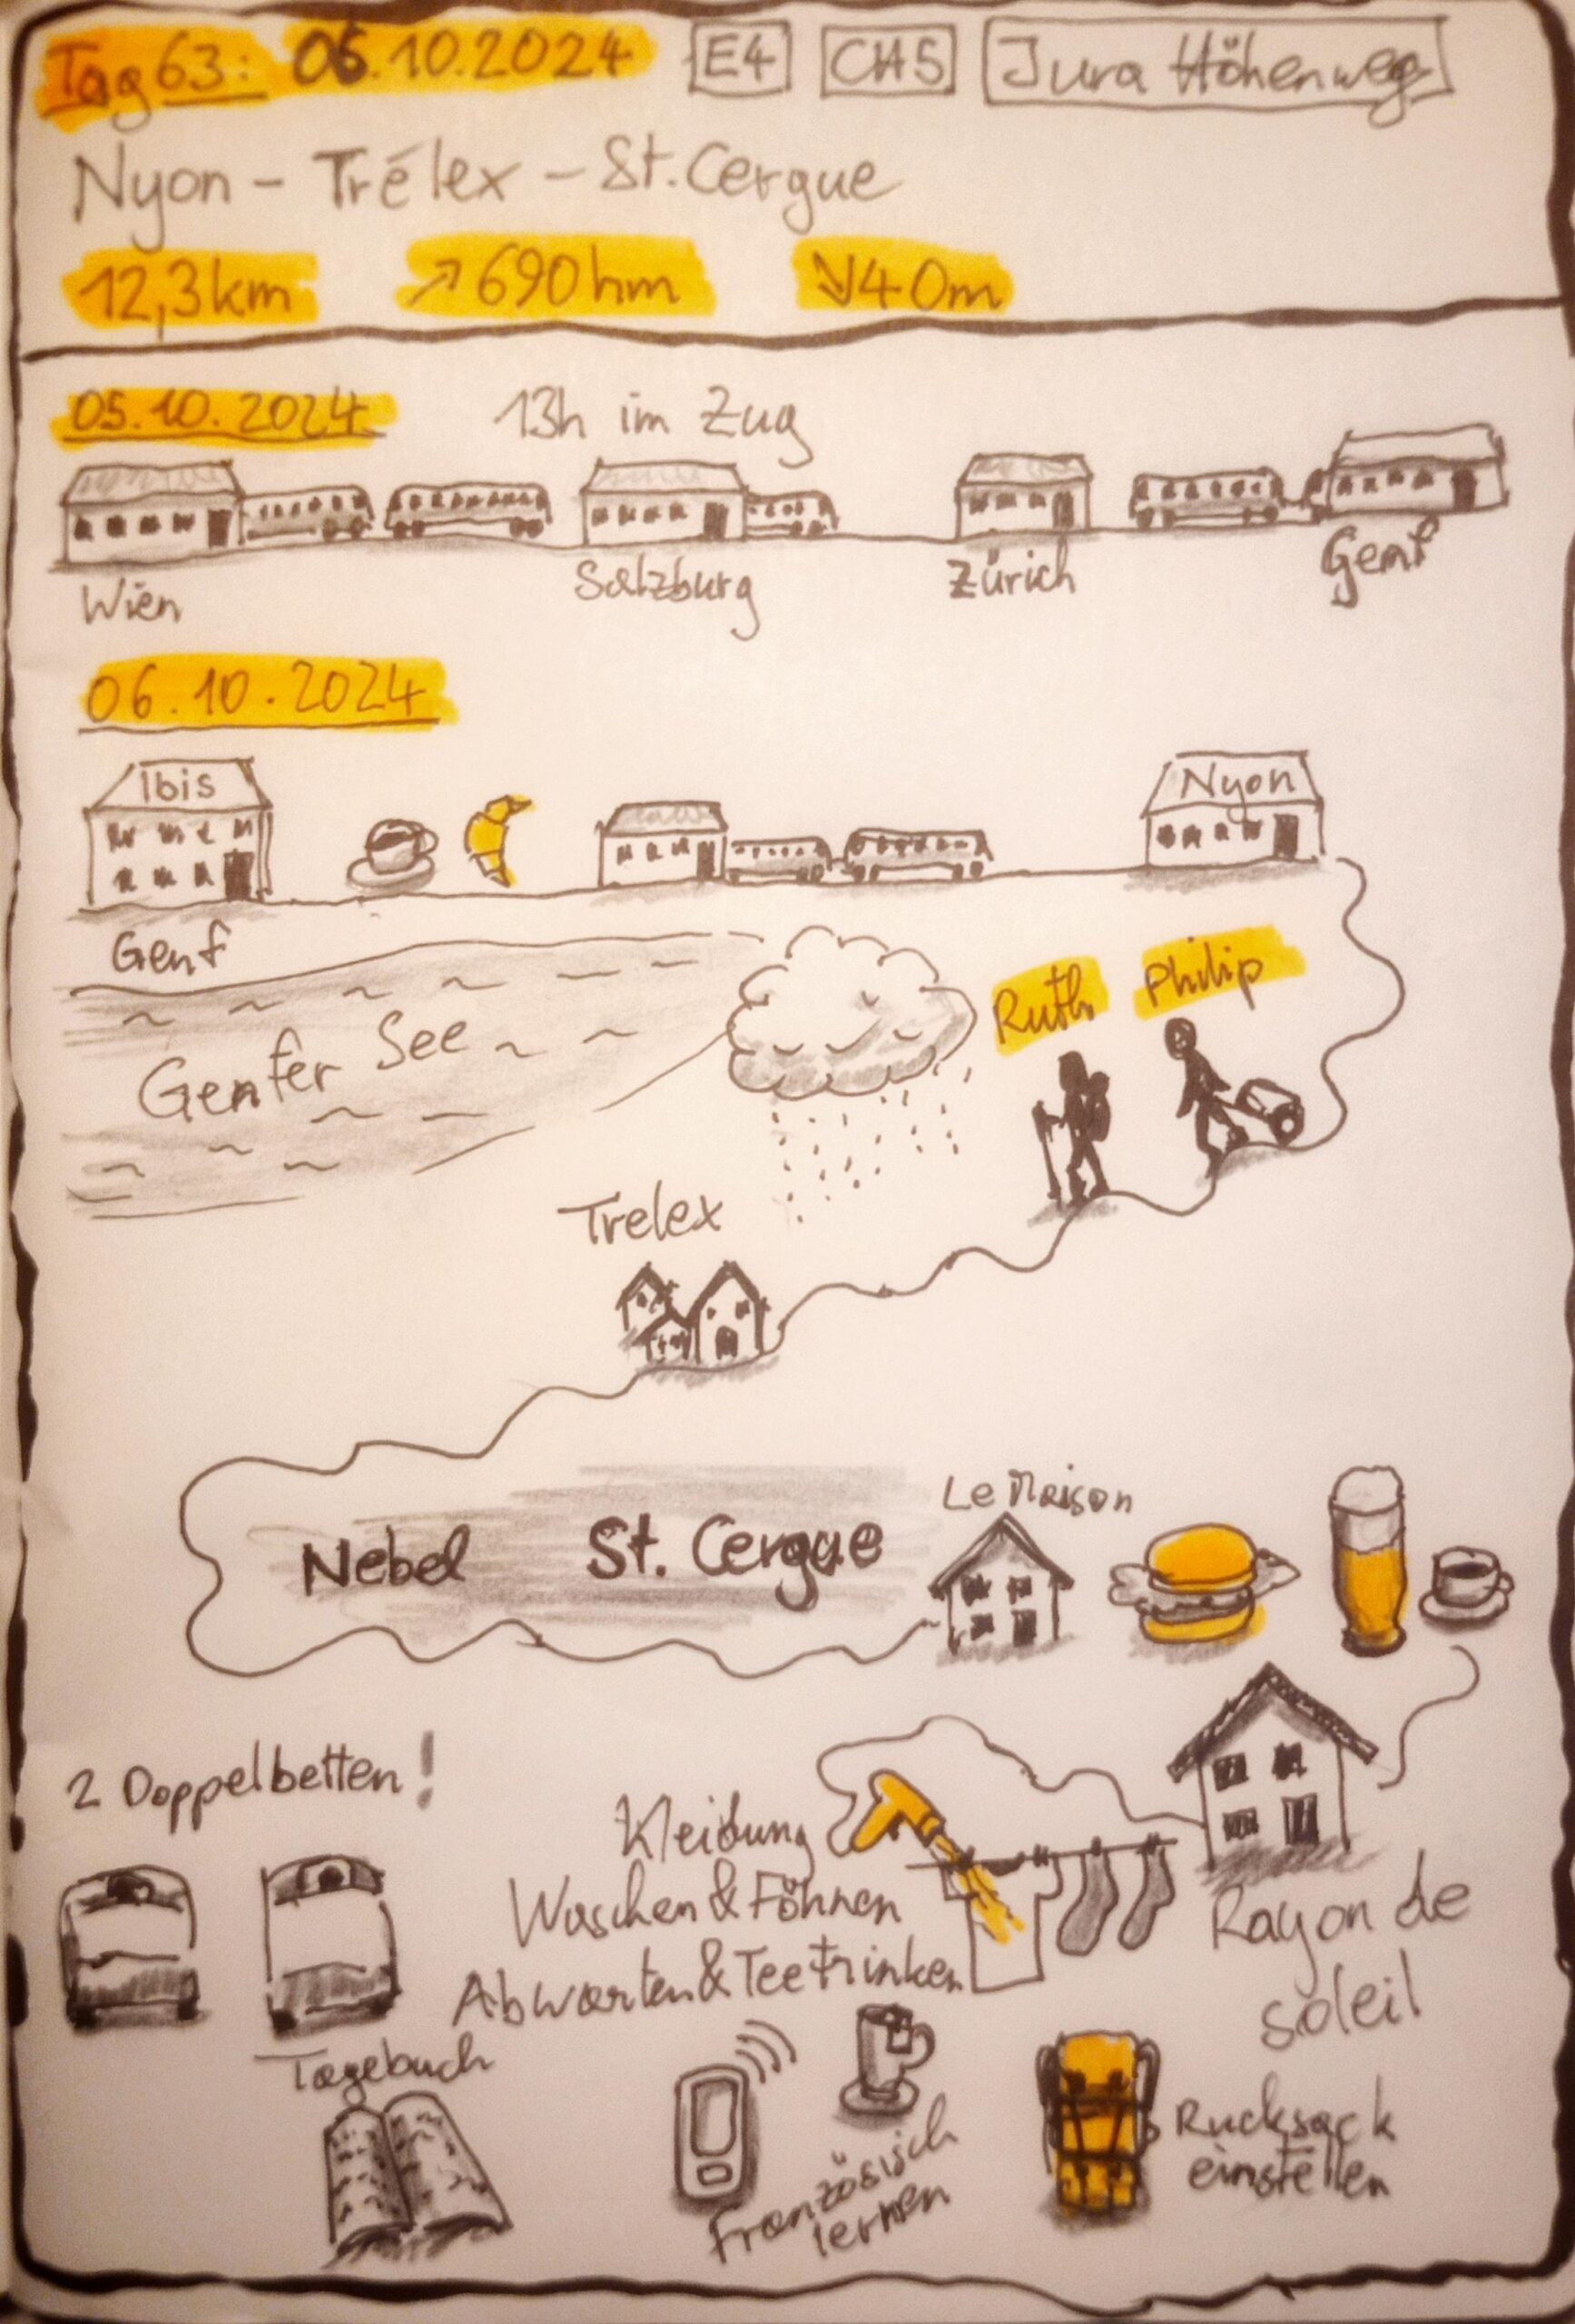 Tag 63: 06.10.2024 E4 CH5 Jura Höhenweg
Nyon - Trélex - St. Cergue
12,3km ↗690hm ↘40m
05.10.2024 13h im Zug
Wien Salzburg Zürich Genf
06.10.2024
Ibis
Nyon
Genf
Genfer See
Ruth Philip
Trelex
Le Maison
Nebel St. Cergue
2 Doppelbetten!
Kleidung
Waschen & Föhnen
Abwarten & Tee trinken
Rayon de
soleil
Tagebuch
Französisch
lernen
Rucksack
einstellen